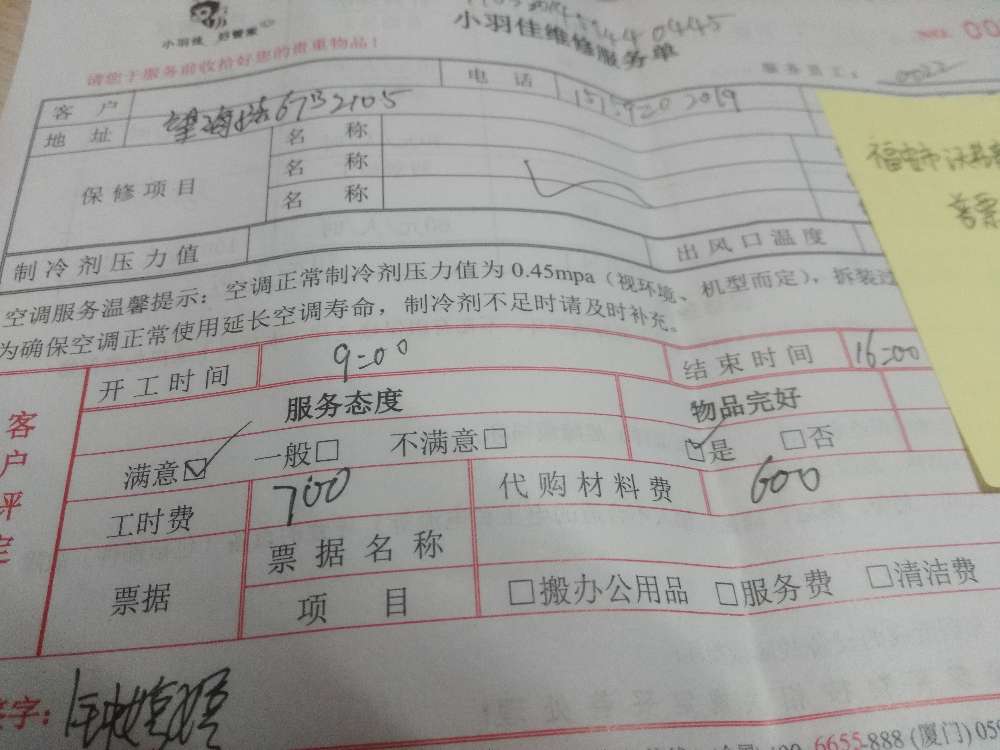 小羽佳 好管家
小羽佳维修服务单
请您于服务前收拾好您的贵重物品！
服务员工： 0022
客户 电话
地址 67B2105
保修项目 名称
名称
名称
制冷剂压力值 出风口温度
空调服务温馨提示：空调正常制冷剂压力值为0.45mpa（视环境、机型而定），拆装过
为确保空调正常使用延长空调寿命，制冷剂不足时请及时补充。
客户评定
开工时间 9:00 结束时间 16:00
服务态度 物品完好
满意☑ 一般□ 不满意□ ☑是 □否
工时费 700 代购材料费 600
票据 票据名称
项目 □搬办公用品 □服务费 □清洁费
签字：
6655-888 (厦门) 059
福安市